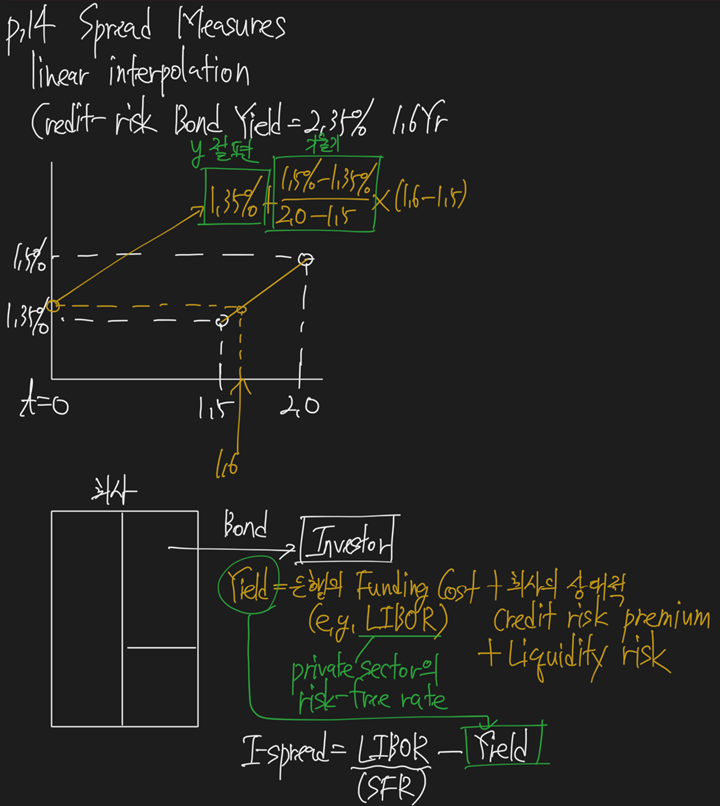 p.14 Spread Measures
linear interpolation
Credit-risk Bond Yield = 2.35% 1.6Yr
y 절편 기울기
1.35% + (1.5% - 1.35%)/(2.0 - 1.5) × (1.6 - 1.5)
1.5%
1.35%
t=0 1.5 2.0
1.6
회사
Bond Investor
Yield = 은행의 Funding Cost + 회사의 상대적
(e.g. LIBOR) Credit risk premium
+ Liquidity risk
private sector의
risk-free rate
I-spread = LIBOR - Yield
(SFR)